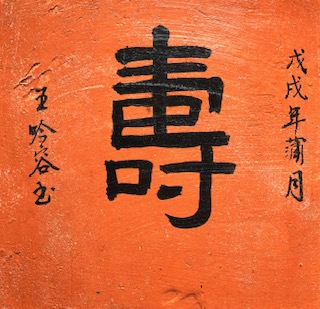 戊戌年蒲月
壽
王吟谷书